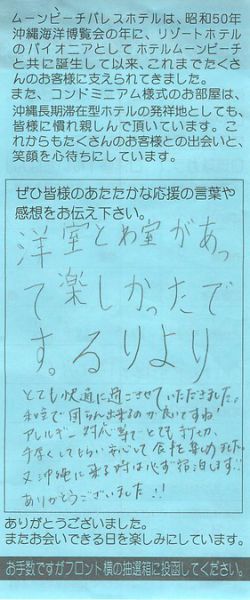 ムーンビーチパレスホテルは、昭和50年
沖縄海洋博覧会の年に、リゾートホテル
のパイオニアとして ホテルムーンビーチ
と共に誕生して以来、これまでたくさん
のお客様に支えられてきました。
また、コンドミニアム様式のお部屋は、
沖縄長期滞在型ホテルの発祥地としても、
皆様に慣れ親しんで頂いています。こ
れからもたくさんのお客様との出会いと、
笑顔を心待ちにしています。
ぜひ皆様のあたたかな応援の言葉や
感想をお伝え下さい。
洋室とわ室があっ
て楽しかったで
す。るりより
とても快適に過ごさせていただきました。
和室で団らん出来るのが良いですね!
アレルギー対応等でとても親切、
して食事を楽しめました。
又沖縄に来る時は必ず宿泊します!!
ありがとうございました!!
ありがとうございました。
またお会いできる日を楽しみにしています。
お手数ですがフロント横の抽選箱に投函してください。